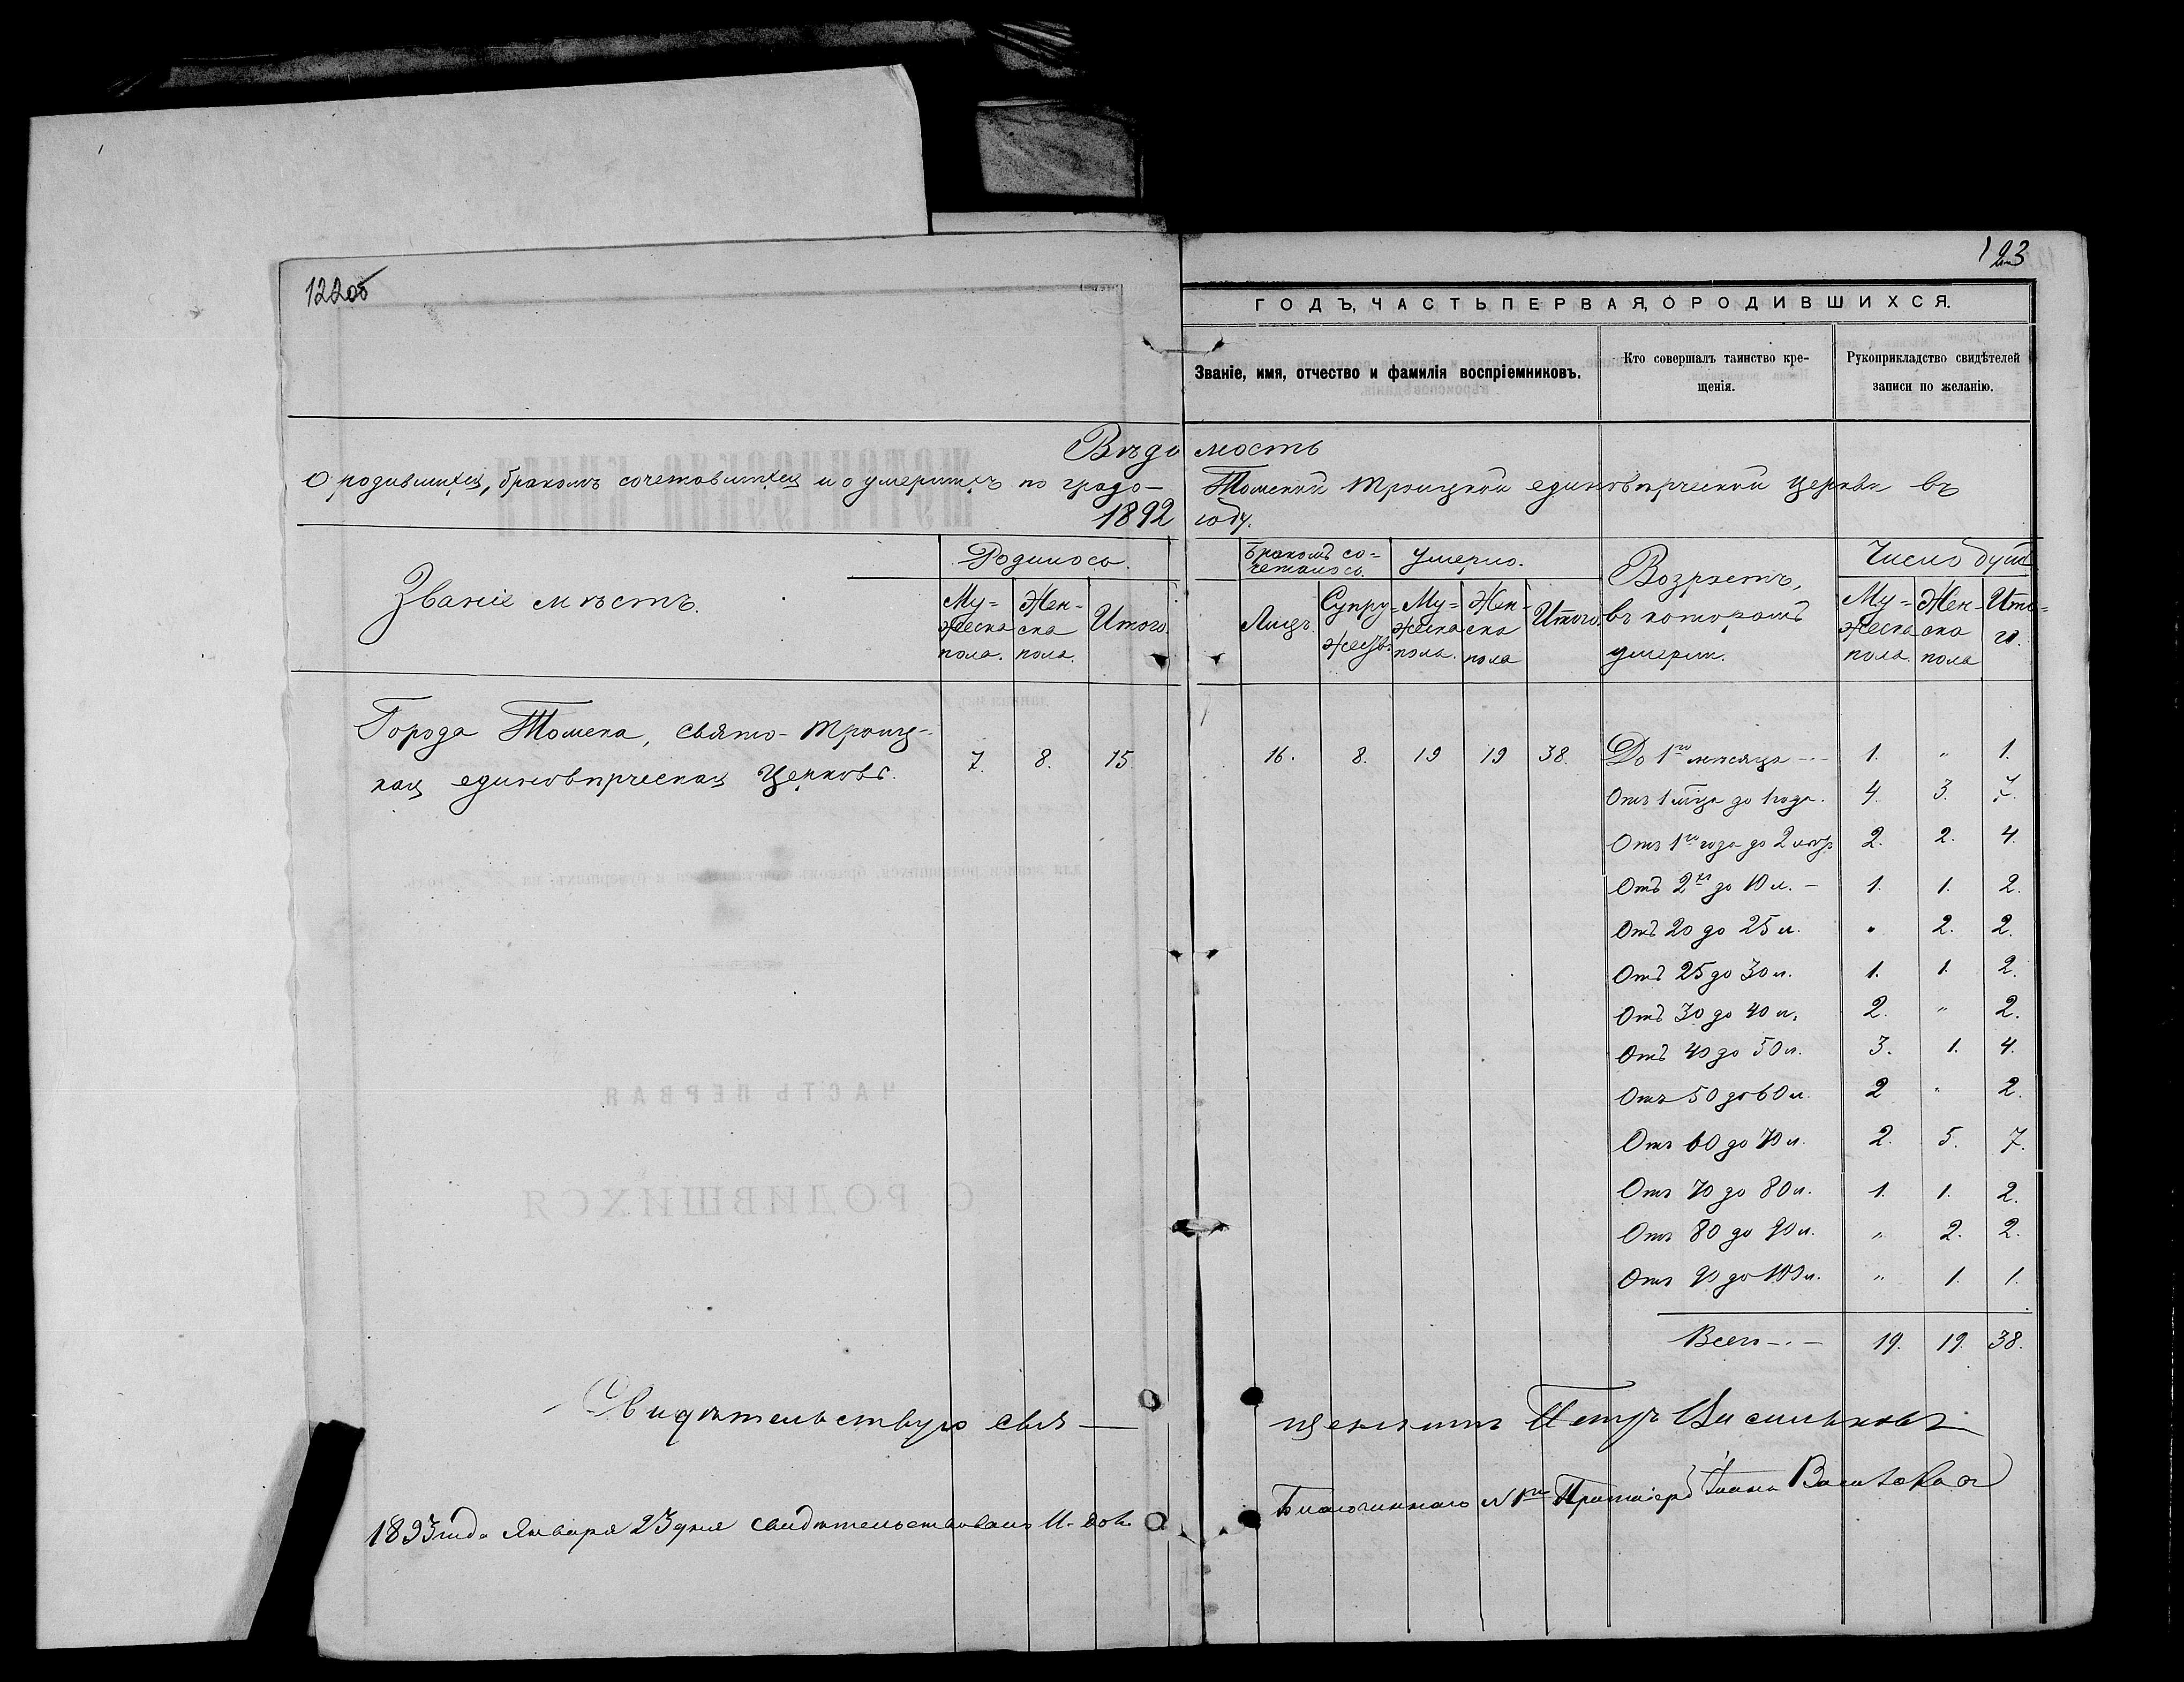 122об
123
ГОДЪ, ЧАСТЬ ПЕРВАЯ, О РОДИВШИХСЯ.
Званіе, имя, отчество и фамилія воспріемниковъ.
Кто совершалъ таинство кре-
щенія.
Рукоприкладство свидѣтелей
записи по желанію.
Вѣдомость
О родившихся, бракомъ сочетавшихся и о умершихъ по градо-Томской Троицкой единовѣрческой церкви въ
1892 году.
Званіе мѣстъ.
Родилось.
Му-
жеска
пола.
Жен-
ска
пола.
Итого.
Бракомъ со-
четалось.
Лицъ.
Супру-
жествъ.
Умерло.
Му-
жеска
пола.
Жен-
ска
пола
Итого.
Возрастъ,
въ которомъ
умерли.
Число душъ
Му-
жеска
пола.
Жен-
ска
пола
Ито-
го.
Города Томска, Свято-Троиц-
кая единовѣрческая Церковь.
7. 8. 15 16. 8. 19 19 38.
До 1го мѣсяца -.- 1. " 1.
Отъ 1 мѣца до 1 года. 4. 3. 7.
Отъ 1го года до 2 лѣтъ 2. 2. 4.
Отъ 2хъ до 10 л. - 1. 1. 2.
Отъ 20 до 25 л. " 2. 2.
Отъ 25 до 30 л. 1. 1. 2.
Отъ 30 до 40 л. 2. " 2.
Отъ 40 до 50 л. 3. 1. 4.
Отъ 50 до 60 л. 2 " 2.
Отъ 60 до 70 л. 2. 5. 7.
Отъ 70 до 80 л. 1. 1. 2.
Отъ 80 до 90 л. " 2. 2.
Отъ 90 до 100 л. " 1. 1.
Всего -.- 19. 19. 38.
Свидѣтельствую свя-щенникъ Петръ Васильковъ
1893 года Января 23 дня свидѣтельствовалъ И. дол. Благочиннаго № 1го Протоіерей Іоаннъ